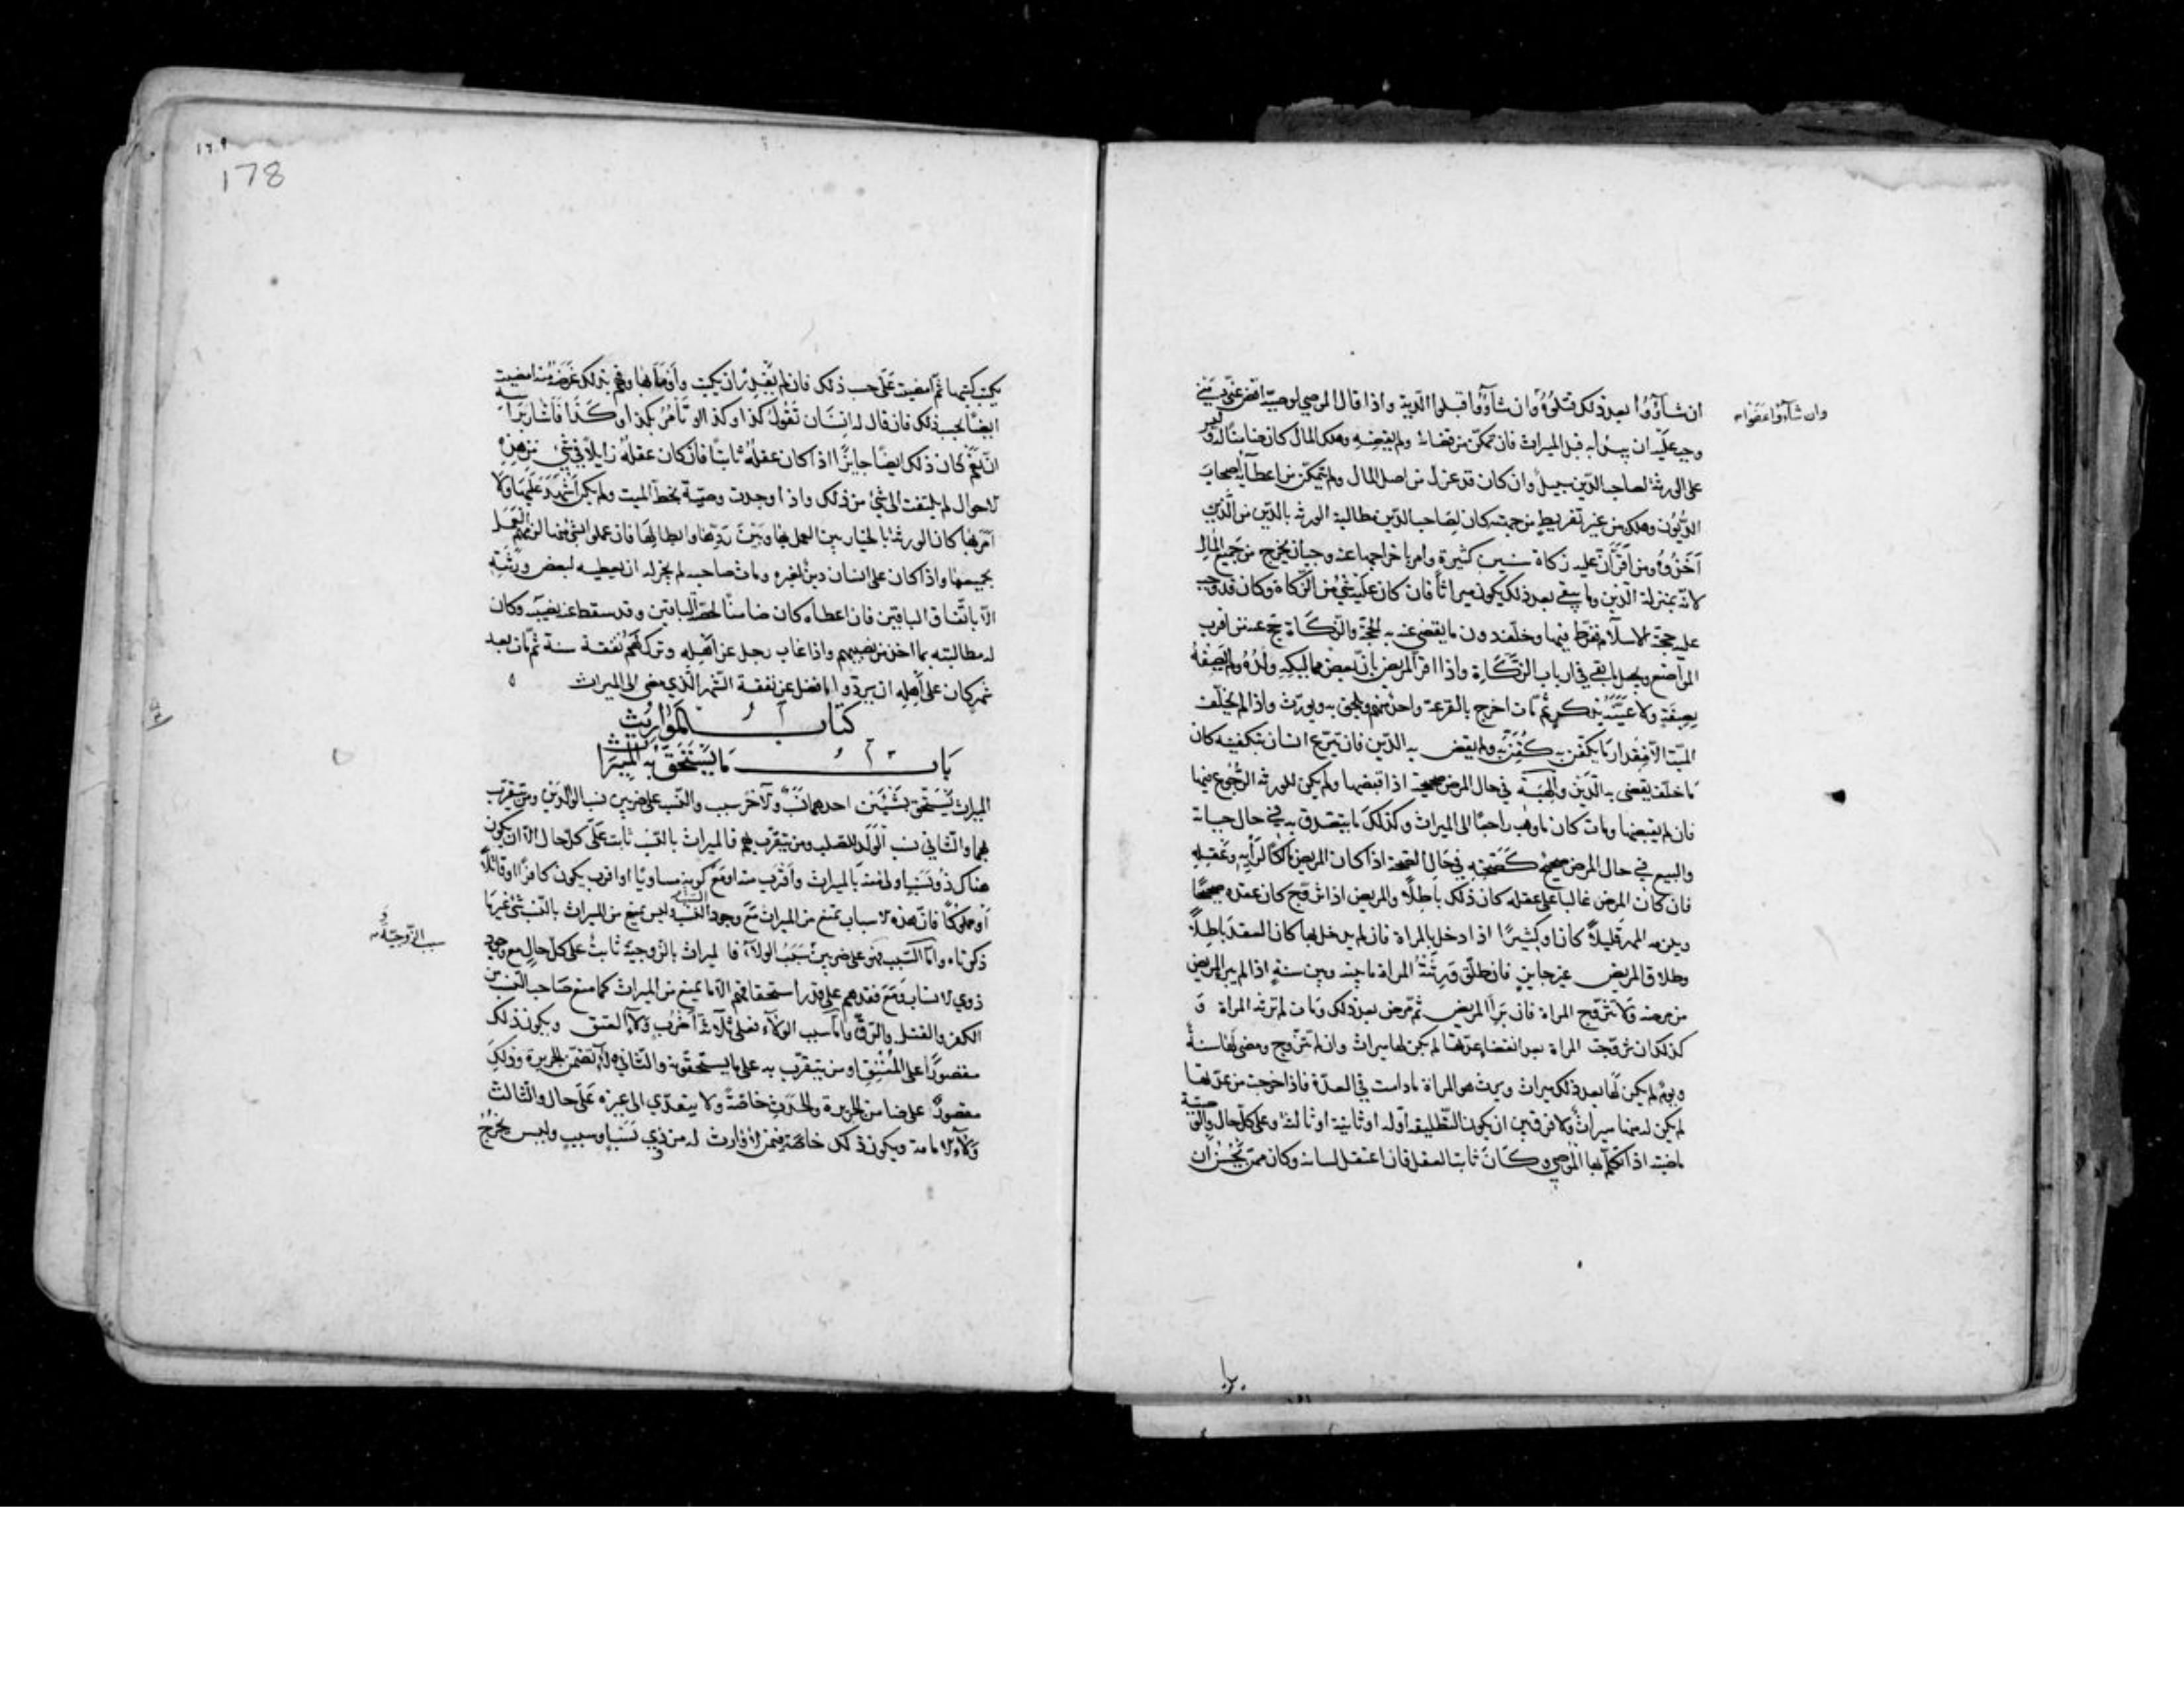 ان شاؤوا بعد ذلك قتلوه وان شاؤوا قبلوا الدية واذا قال الموصي لوصيه اقض عني ديني
وان شاؤا عفوا
وجب عليه ان يبدأ به قبل الميراث فان تمكن من قضائه ولم يقضه وهلك المال كان ضامنا له وليس
على الورثة لصاحب الدين سبيل وان كان قد عزله من اصل المال ولم يتمكن من اعطائه اصحاب
الديون وهلك من غير تفريط من جهته كان لصاحب الدين مطالبة الورثة بالدين من الذي
اخذوه ومن اقر ان عليه زكاة سنين كثيرة وامر باخراجها عنه وجب ان يخرج من جميع المال
لانه بمنزلة الدين وما يبقى بعد ذلك يكون ميراثا فان كان عليه شيء من الزكاة وكان قد وجب
عليه حجة الاسلام ففرط فيها وخلف دون ما يقضى عنه به الحجة والزكاة حج عنه من اقرب
المواضع ويجعل ما بقي في ارباب الزكاة واذا اقر المريض بان بعض مماليكه ولده ولم يصفه
بصفة ولا عينه بذكر ثم مات اخرج بالقرعة واحد منهم ويلحق به ويورث واذا لم يخلف
الميت الا مقدار ما يكفن به كفن به ولم يقض به الدين فان تبرع انسان بتكفينه كان
ما خلف يقضى به الدين والهبة في حال المرض صحيحة اذا قبضها ولم يكن للورثة الرجوع فيها
فان لم يقبضها ومات كان ما وهب راجعا الى الميراث وكذلك ما يتصدق به في حال حياته
والبيع في حال المرض صحيح كصحته في حال الصحة اذا كان المريض مالكا لرأيه وعقله
فان كان المرض غالبا على عقله كان ذلك باطلا والمريض اذا تزوج كان عقده صحيحا
ويلزمه المهر قليلا كان او كثيرا اذا دخل بالمراة فان لم يدخل بها كان العقد باطلا
وطلاق المريض غير جايز فان طلق ورثته المراة ما بينه وبين سنة اذا لم يبر المريض
من مرضه ولا تتزوج المراة فان برأ المريض ثم مرض بعد ذلك ومات لم ترثه المراة و
كذلك ان تزوجت المراة بعد انقضاء عدتها لم يكن لها ميراث وان لم تتزوج ومضى لها سنة
ويوم لم يكن لها بعد ذلك ميراث ويرث هو المراة ما دامت في العدة فاذا خرجت من عدتها
لم يكن له منها ميراث ولا فرق بين ان يكون التطليقة اوله او ثانية او ثالثة وعلى كل حال والوصية
ماضية اذا تكلم بها الموصي وكان ثابت العقل فان اعتقل لسانه وكان ممن يحسن ان
178
يكتب كتبها ثم امضيت على حسب ذلك فان لم يقدر ان يكتب وأومأ بها وفهم بذلك غرضه منه امضيت
ايضا بحسب ذلك فان قال له انسان تقول كذا وكذا او تأمر بكذا وكذا فاشار برأسه
ان نعم كان ذلك ايضا جايزا اذا كان عقله ثابتا فان كان عقله زايلا في شيء من هذه
الاحوال لم يلتفت الى شيء من ذلك واذا وجدت وصية بخط الميت ولم يكن اشهد عليها ولا
امر بها كان الورثة بالخيار بين العمل بها وبين ردها وابطالها فان عملوا بشيء منها لزمهم العمل
بجميعها واذا كان على انسان دين لغيره ومات صاحبه لم يجز له ان يعطيه لبعض ورثته
الا باتفاق الباقين فان اعطاه كان ضامنا لحصة الباقين وقد سقط عنه نصيبه وكان
له مطالبته بما اخذ من نصيبهم واذا غاب رجل عن اهله وترك لهم نفقة سنة ثم مات بعد
شهر كان على اهله ان يردوا ما فضل عن نفقة الشهر الذي مضى الى الميراث
كتاب المواريث
باب ما يستحق به الميراث
الميراث يستحق بشيئين احدهما نسب والآخر سبب والنسب على ضربين نسب الوالدين ومن يتقرب
بهما والثاني نسب الولد للصلب ومن يتقرب بهم فالميراث بالنسب ثابت على كل حال الا ان يكون
هناك ذو نسب اولى منه بالميراث وأقرب منه او مع كونه مساويا او اقرب يكون كافرا او قاتلا
أو مملوكا فان هذه الاسباب تمنع من الميراث مع وجود النسب وليس يمنع من الميراث بالنسب شيء غير ما
ذكرناه واما السبب فهو على ضربين سبب الولاء فالميراث بالزوجية ثابت على كل حال مع وجود
سبب الزوجية و
ذوي الانساب ومع فقدهم على قدر استحقاقهم الا ما يمنع من الميراث كما منع صاحب النسب من
الكفر والقتل والرق واما سبب الولاء فعلى ثلاثة اضرب ولاء العتق ويكون ذلك
مقصورا على المعتق او من يتقرب به على ما يستحقونه والثاني ولاء تضمن الجريرة وذلك
مقصور على ضامن الجريرة والحدث خاصة ولا يتعدى الى غيره على حال والثالث
ولاء الامامة ويكون ذلك خاصة فيمن لا وارث له من ذي نسب او سبب وليس يخرج